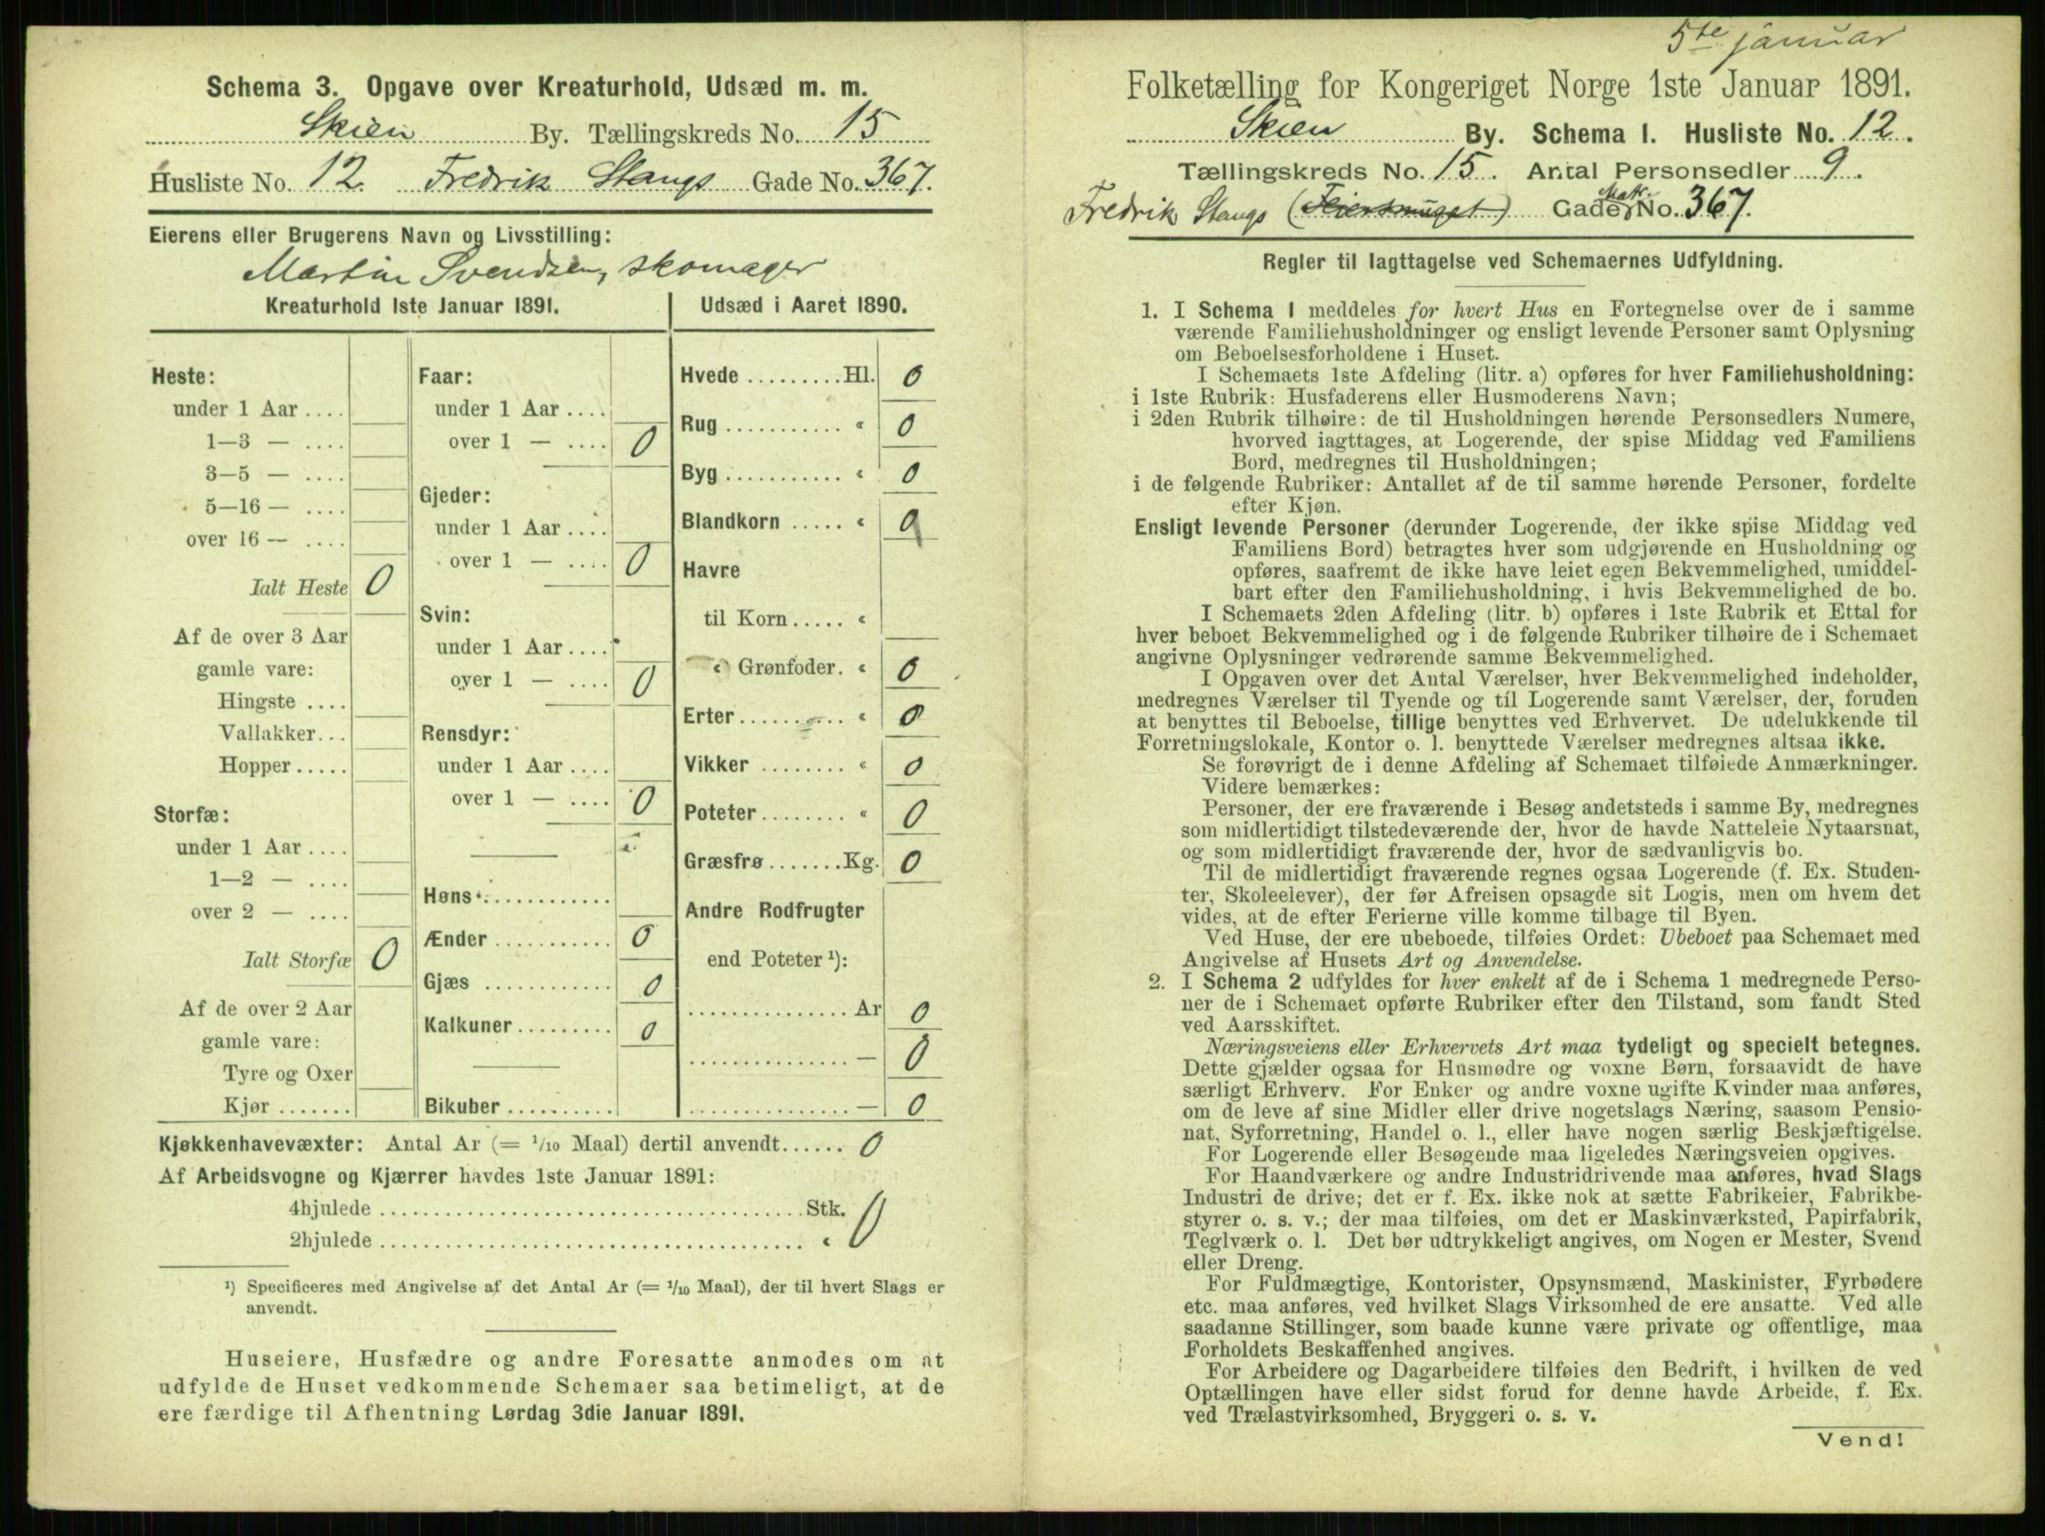 Schema 3. Opgave over Kreaturhold, Udsæd m. m.
Skien By. Tællingskreds No. 15
Husliste No. 12. Fredrik Stangs Gade No. 367.
Eierens eller Brugerens Navn og Livsstilling:
Martin Svendsen, skomager
Kreaturhold 1ste Januar 1891.
Heste:
under 1 Aar ....
1—3 — ....
3—5 — ....
5—16 — ....
over 16 — ....
Ialt Heste 0
Af de over 3 Aar
gamle vare:
Hingste ....
Vallakker...
Hopper.....
Storfæ:
under 1 Aar ....
1—2 — ....
over 2 — ....
Ialt Storfæ 0
Af de over 2 Aar
gamle vare:
Tyre og Oxer
Kjør .......
Faar:
under 1 Aar ....
over 1 — .... 0
Gjeder:
under 1 Aar ....
over 1 — .... 0
Svin:
under 1 Aar ....
over 1 — .... 0
Rensdyr:
under 1 Aar ....
over 1 — .... 0
Høns ............
Ænder ........... 0
Gjæs ............ 0
Kalkuner......... 0
Bikuber ..........
Udsæd i Aaret 1890.
Hvede .........Hl. 0
Rug ........... " 0
Byg ........... " 0
Blandkorn ..... " 0
Havre
til Korn ..... "
" Grønfoder. " 0
Erter.......... " 0
Vikker ........ " 0
Poteter........ " 0
Græsfrø .......Kg. 0
Andre Rodfrugter
end Poteter ¹):
............... Ar 0
............... — 0
............... — 0
Kjøkkenhavevæxter: Antal Ar (= 1/10 Maal) dertil anvendt...... 0
Af Arbeidsvogne og Kjærrer havdes 1ste Januar 1891:
4hjulede ..................................... Stk.
2hjulede ..................................... " 0
¹) Specificeres med Angivelse af det Antal Ar (= 1/10 Maal), der til hvert Slags er
anvendt.
Huseiere, Husfædre og andre Foresatte anmodes om at
udfylde de Huset vedkommende Schemaer saa betimeligt, at de
ere færdige til Afhentning Lørdag 3die Januar 1891.
5te januar
Folketælling for Kongeriget Norge 1ste Januar 1891.
Skien By. Schema 1. Husliste No. 12.
Tællingskreds No. 15. Antal Personsedler 9.
Fredrik Stangs (Feiersmuget) Gade Matr. No. 367.
Regler til Iagttagelse ved Schemaernes Udfyldning.
1. I Schema 1 meddeles for hvert Hus en Fortegnelse over de i samme
værende Familiehusholdninger og ensligt levende Personer samt Oplysning
om Beboelsesforholdene i Huset.
I Schemaets 1ste Afdeling (litr. a) opføres for hver Familiehusholdning:
i 1ste Rubrik: Husfaderens eller Husmoderens Navn;
i 2den Rubrik tilhøire: de til Husholdningen hørende Personsedlers Numere,
hvorved iagttages, at Logerende, der spise Middag ved Familiens
Bord, medregnes til Husholdningen;
i de følgende Rubriker: Antallet af de til samme hørende Personer, fordelte
efter Kjøn.
Ensligt levende Personer (derunder Logerende, der ikke spise Middag ved
Familiens Bord) betragtes hver som udgjørende en Husholdning og
opføres, saafremt de ikke have leiet egen Bekvemmelighed, umiddel-
bart efter den Familiehusholdning, i hvis Bekvemmelighed de bo.
I Schemaets 2den Afdeling (litr. b) opføres i 1ste Rubrik et Ettal for
hver beboet Bekvemmelighed og i de følgende Rubriker tilhøire de i Schemaet
angivne Oplysninger vedrørende samme Bekvemmelighed.
I Opgaven over det Antal Værelser, hver Bekvemmelighed indeholder,
medregnes Værelser til Tyende og til Logerende samt Værelser, der, foruden
at benyttes til Beboelse, tillige benyttes ved Erhvervet. De udelukkende til
Forretningslokale, Kontor o. l. benyttede Værelser medregnes altsaa ikke.
Se forøvrigt de i denne Afdeling af Schemaet tilføiede Anmærkninger.
Videre bemærkes:
Personer, der ere fraværende i Besøg andetsteds i samme By, medregnes
som midlertidigt tilstedeværende der, hvor de havde Natteleie Nytaarsnat,
og som midlertidigt fraværende der, hvor de sædvanligvis bo.
Til de midlertidigt fraværende regnes ogsaa Logerende (f. Ex. Studen-
ter, Skoleelever), der før Afreisen opsagde sit Logis, men om hvem det
vides, at de efter Ferierne ville komme tilbage til Byen.
Ved Huse, der ere ubeboede, tilføies Ordet: Ubeboet paa Schemaet med
Angivelse af Husets Art og Anvendelse.
2. I Schema 2 udfyldes for hver enkelt af de i Schema 1 medregnede Perso-
ner de i Schemaet opførte Rubriker efter den Tilstand, som fandt Sted
ved Aarsskiftet.
Næringsveiens eller Erhvervets Art maa tydeligt og specielt betegnes.
Dette gjælder ogsaa for Husmødre og voxne Børn, forsaavidt de have
særligt Erhverv. For Enker og andre voxne ugifte Kvinder maa anføres,
om de leve af sine Midler eller drive nogetslags Næring, saasom Pensio-
nat, Syforretning, Handel o. l., eller have nogen særlig Beskjæftigelse.
For Logerende eller Besøgende maa ligeledes Næringsveien opgives.
For Haandværkere og andre Industridrivende maa anføres, hvad Slags
Industri de drive; det er f. Ex. ikke nok at sætte Fabrikeier, Fabrikbe-
styrer o. s. v.; der maa tilføies, om det er Maskinværksted, Papirfabrik,
Teglværk o. l. Det bør udtrykkeligt angives, om Nogen er Mester, Svend
eller Dreng.
For Fuldmægtige, Kontorister, Opsynsmænd, Maskinister, Fyrbødere
etc. maa anføres, ved hvilket Slags Virksomhed de ere ansatte. Ved alle
saadanne Stillinger, som baade kunne være private og offentlige, maa
Forholdets Beskaffenhed angives.
For Arbeidere og Dagarbeidere tilføies den Bedrift, i hvilken de ved
Optællingen have eller sidst forud for denne havde Arbeide, f. Ex.
ved Trælastvirksomhed, Bryggeri o. s. v.
Vend!